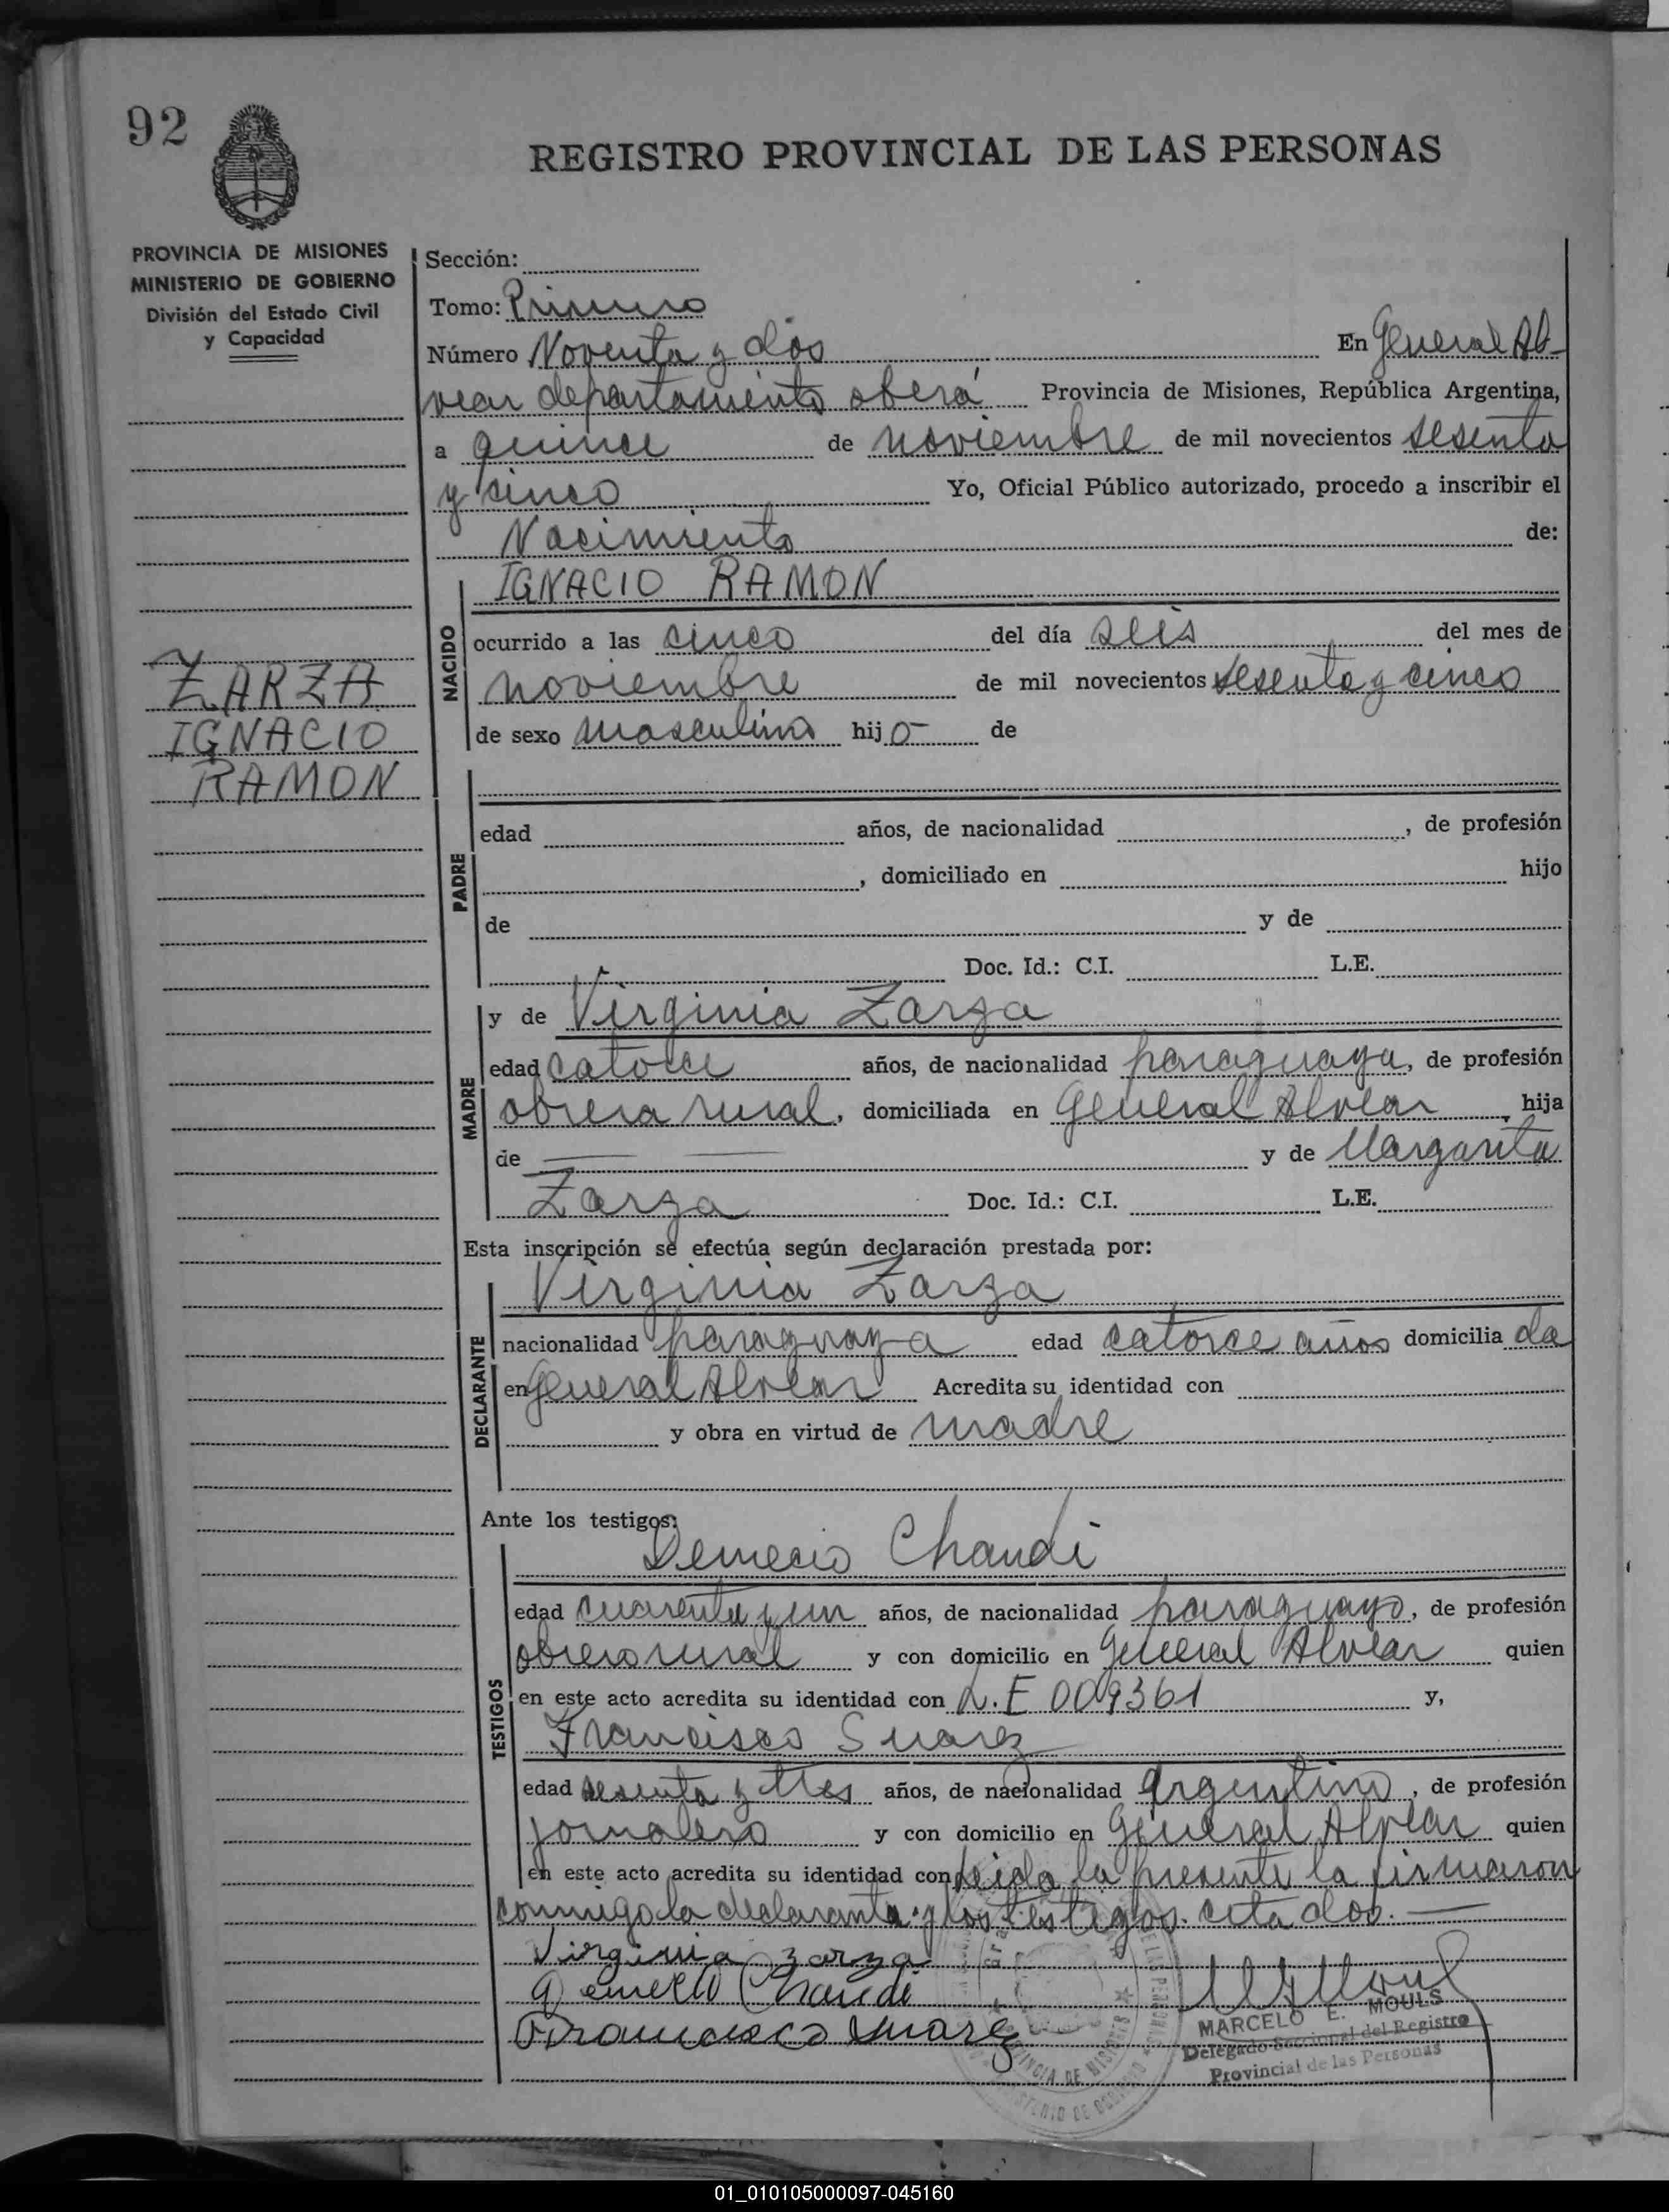 92
REGISTRO PROVINCIAL DE LAS PERSONAS
PROVINCIA DE MISIONES
MINISTERIO DE GOBIERNO
División del Estado Civil
y Capacidad
Sección:
Tomo: Primero
Número Noventa y dos En General Al-
vear departamento oberá Provincia de Misiones, República Argentina,
a quince de noviembre de mil novecientos sesenta
y cinco Yo, Oficial Público autorizado, procedo a inscribir el
Nacimiento de:
ZARZA
IGNACIO
RAMON
NACIDO
IGNACIO RAMON
ocurrido a las cinco del día seis del mes de
noviembre de mil novecientos sesenta y cinco
de sexo masculino hijo de
PADRE
edad años, de nacionalidad , de profesión
, domiciliado en hijo
de y de
Doc. Id.: C.I. L.E.
MADRE
y de Virginia Zarza
edad catorce años, de nacionalidad paraguaya, de profesión
obrera rural, domiciliada en General Alvear, hija
de — — y de Margarita
Zarza Doc. Id.: C.I. L.E.
Esta inscripción se efectúa según declaración prestada por:
DECLARANTE
Virginia Zarza
nacionalidad paraguaya edad catorce años domicilia da
en General Alvear Acredita su identidad con
y obra en virtud de madre
Ante los testigos:
TESTIGOS
Demecio Chandi
edad cuarenta y un años, de nacionalidad paraguayo, de profesión
obrero rural y con domicilio en General Alvear quien
en este acto acredita su identidad con L.E 009361 y,
Francisco Suarez
edad sesenta y tres años, de nacionalidad Argentino, de profesión
jornalero y con domicilio en General Alvear quien
en este acto acredita su identidad con Leida la presente la firmaron
conmigo la declaranta y los testigos citados. —
Virginia Zarza
Demecio Chandi
Francisco Suarez
MARCELO E. MOULS
Delegado Seccional del Registro
Provincial de las Personas
01_010105000097-045160